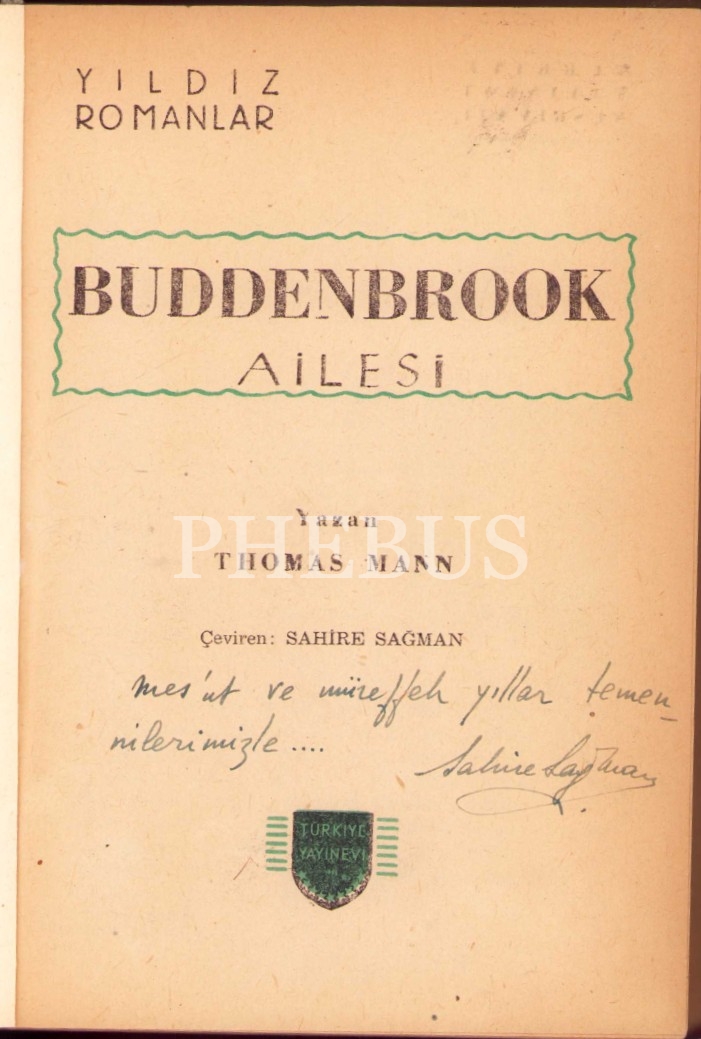 YILDIZ
ROMANLAR
BUDDENBROOK
AİLESİ
Yazan
PHEBUS
THOMAS MANN
Çeviren: SAHİRE SAĞMAN
mes'ut ve müreffeh yıllar temen-
nilerimizle....
Sahire Sağman
TÜRKİYE
YAYINEVİ